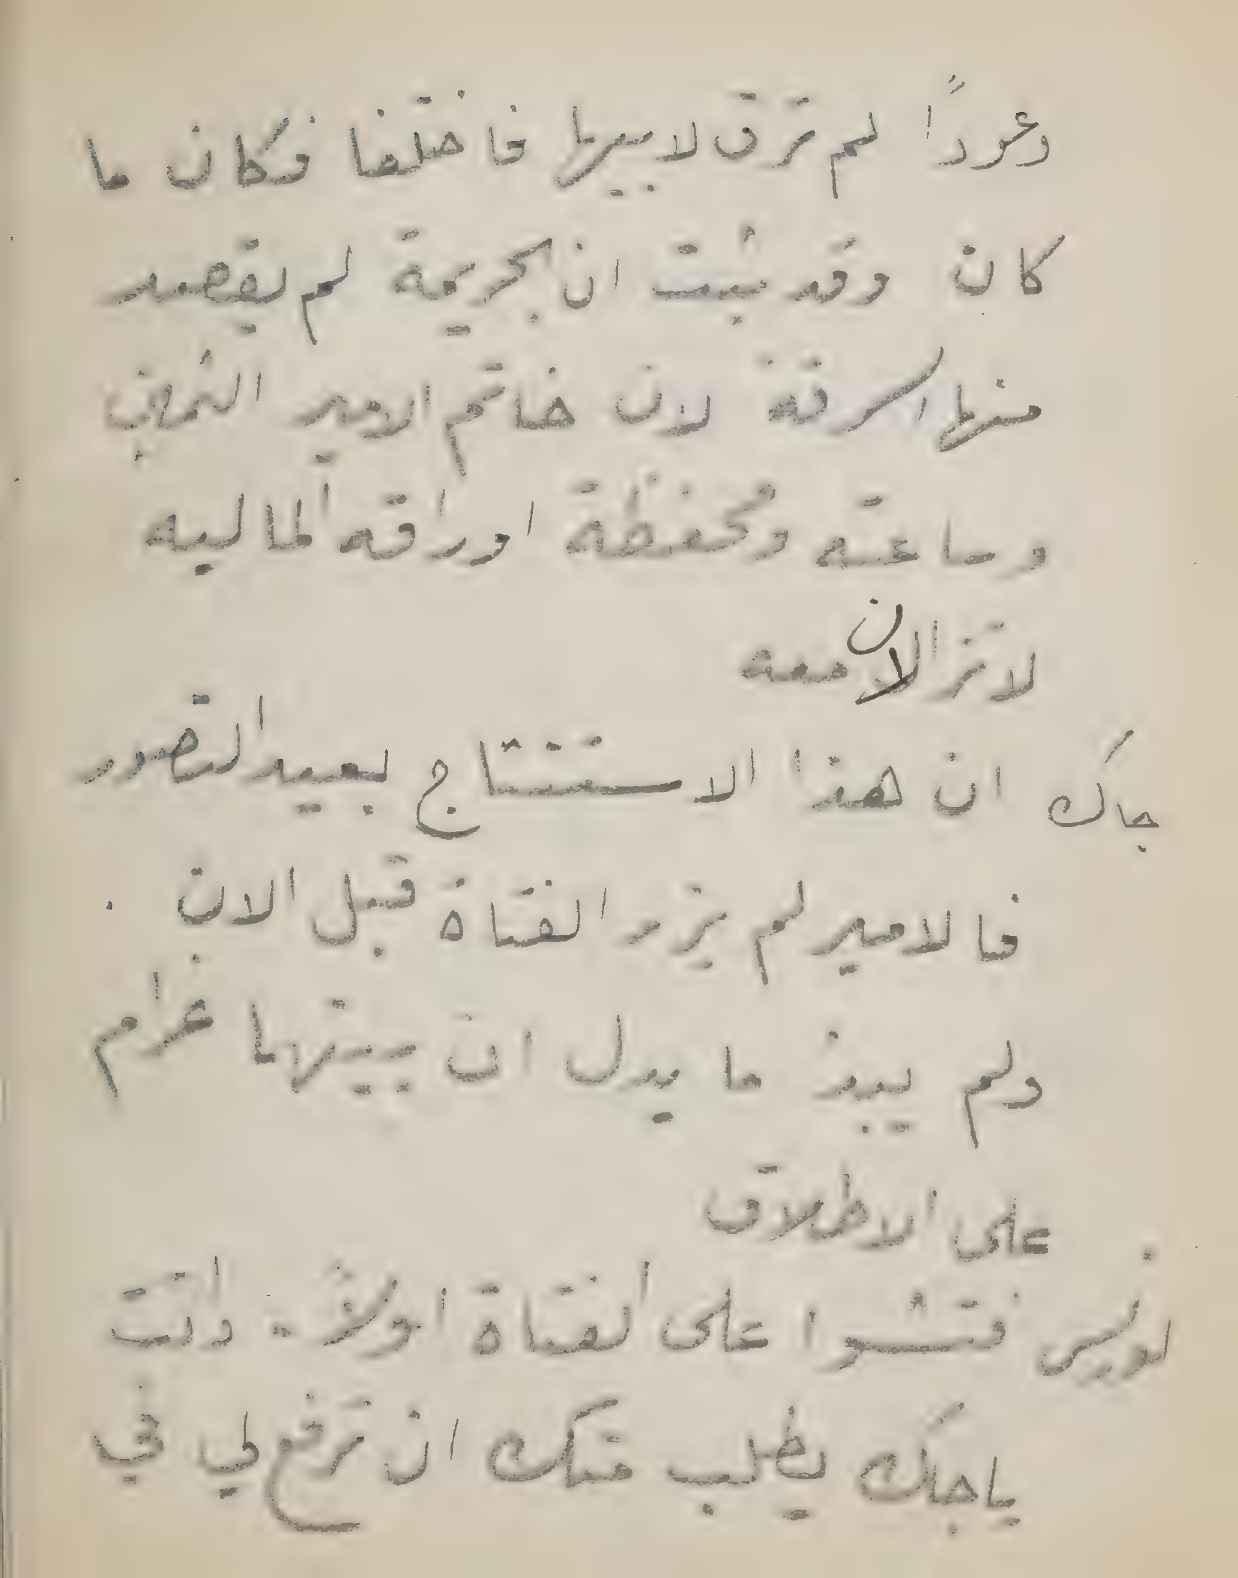 وعوداً لم ترق لابيها فاختلفا فكان ما
كان وقد ثبت ان الجريمة لم يقصد
منها السرقة لان خاتم الامير الثمين
وساعته ومحفظة اوراقه الماليه
لا تزالان معه
جاك ان هذا الاستنتاج بعيد التصور
فالامير لم يزر الفتاة قبل الان .
ولم يبد ما يدل ان بينهما غرام
على الاطلاق
لورنس فتشوا على الفتاة اولاً . وانت
ياجاك يطلب منك ان ترفع لي في